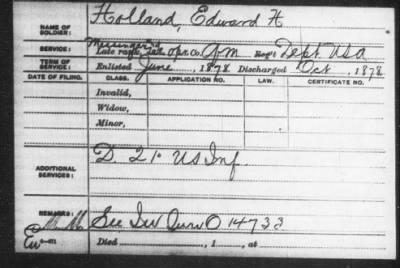 NAME OF SOLDIER: Holland, Edward H
SERVICE: Messenger
Late rank, Co. Q.M. Reg't Dept. USA
TERM OF SERVICE: Enlisted June, 1878 Discharged Oct, 1878
DATE OF FILING. CLASS. APPLICATION NO. LAW. CERTIFICATE NO.
Invalid,
Widow,
Minor,
ADDITIONAL SERVICES: D. 21. US Inf
REMARKS: See Inv 14733
Died, 1, at